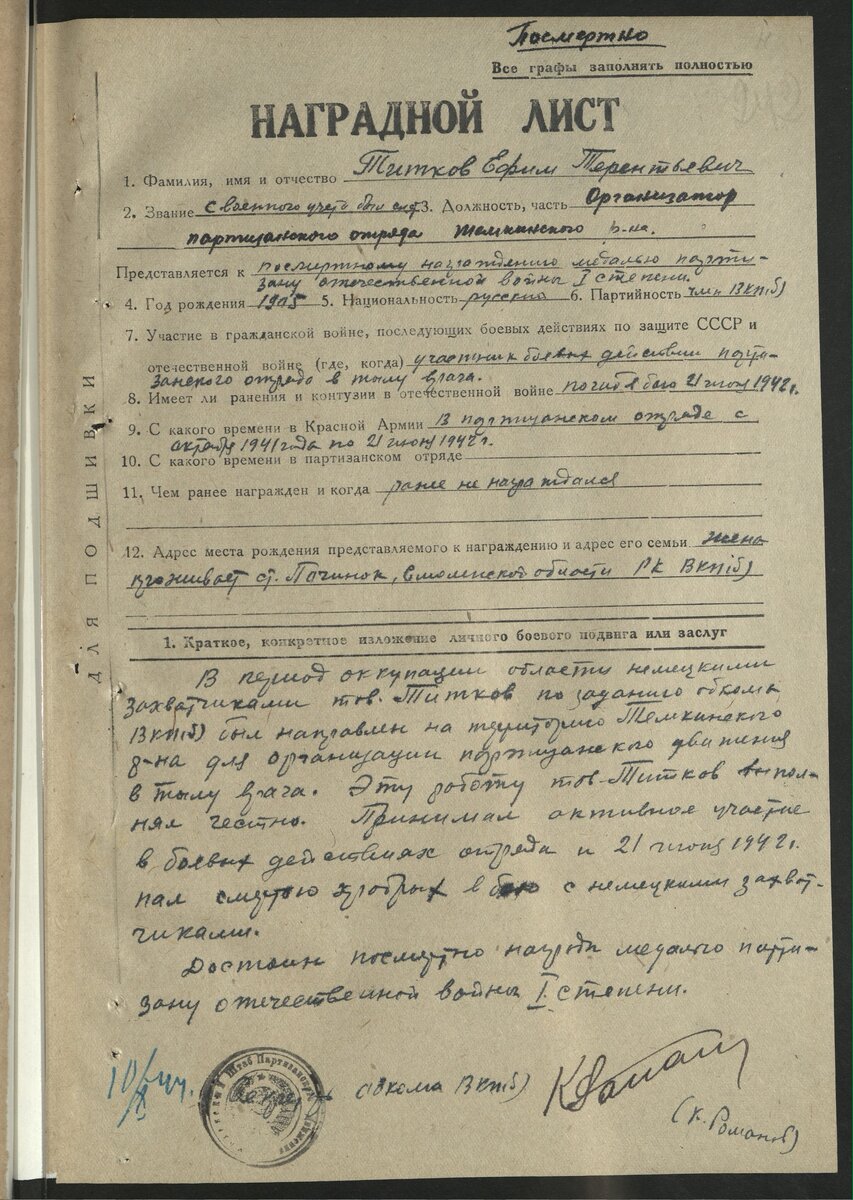 Посмертно
Все графы заполнять полностью
НАГРАДНОЙ ЛИСТ
1. Фамилия, имя и отчество Титков Ефим Терентьевич
2. Звание с военного учета был снят 3. Должность, часть Организатор
партизанского отряда Темкинского р-на.
Представляется к посмертному награждению медалью парти-
зану отечественной войны I степени.
4. Год рождения 1905 5. Национальность русский 6. Партийность член ВКП(б)
7. Участие в гражданской войне, последующих боевых действиях по защите СССР и
отечественной войне (где, когда) участник боевых действий парти-
занского отряда в тылу врага.
8. Имеет ли ранения и контузии в отечественной войне погиб в бою 21 июня 1942 г.
9. С какого времени в Красной Армии В партизанском отряде с
октября 1941 года по 21 июня 1942 г.
10. С какого времени в партизанском отряде
11. Чем ранее награжден и когда ранее не награждался
12. Адрес места рождения представляемого к награждению и адрес его семьи жена
проживает ст. Починок, Смоленской области РК ВКП(б)
1. Краткое, конкретное изложение личного боевого подвига или заслуг
В период оккупации области немецкими
захватчиками тов. Титков по заданию обкома
ВКП(б) был направлен на территорию Темкинского
р-на для организации партизанского движения
в тылу врага. Эту работу тов. Титков выпол-
нял честно. Принимал активное участие
в боевых действиях отряда и 21 июня 1942 г.
пал смертью храбрых в бою с немецкими захват-
чиками.
Достоин посмертно награды медалью парти-
зану отечественной войны I степени.
обкома ВКП(б)
(К. Романов)
Штаб Партизанского Движения
ДЛЯ ПОДШИВКИ